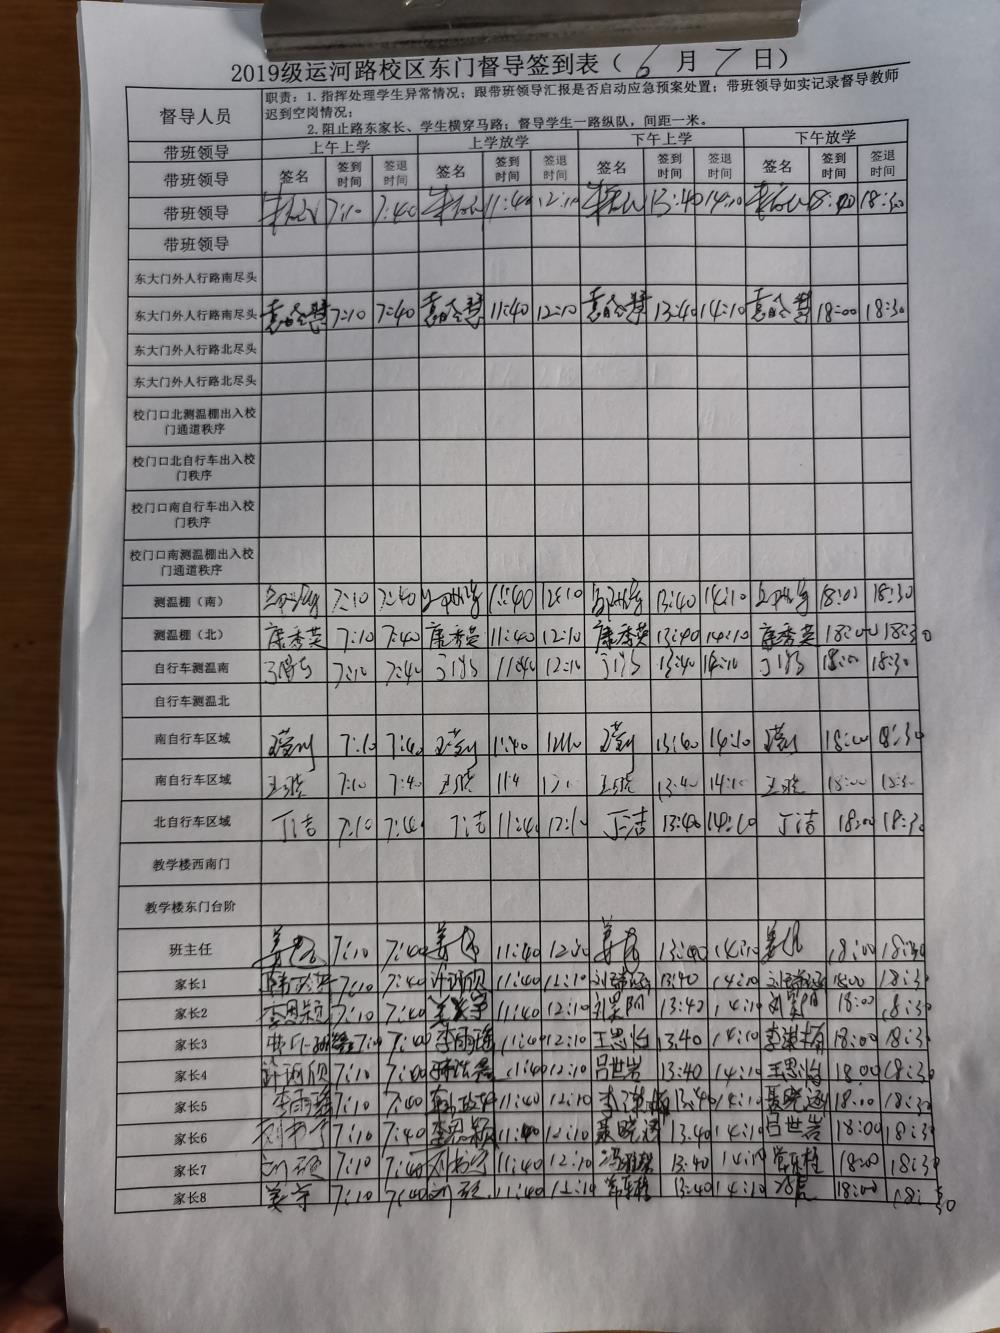 2019级运河路校区东门督导签到表（6月7日）
督导人员 职责：1.指挥处理学生异常情况；跟带班领导汇报是否启动应急预案处置；带班领导如实记录督导教师
迟到空岗情况；
2.阻止路东家长、学生横穿马路；督导学生一路纵队，间距一米。
带班领导 上午上学 上学放学 下午上学 下午放学
带班领导 签名 签到时间 签退时间 签名 签到时间 签退时间 签名 签到时间 签退时间 签名 签到时间 签退时间
带班领导 7:10 7:40 11:40 12:10 13:40 14:10 18:00 18:30
带班领导
东大门外人行路南尽头
东大门外人行路南尽头 7:10 7:40 11:40 12:10 13:40 14:10 18:00 18:30
东大门外人行路北尽头
东大门外人行路北尽头
校门口北测温棚出入校
门通道秩序
校门口北自行车出入校
门秩序
校门口南自行车出入校
门秩序
校门口南测温棚出入校
门通道秩序
测温棚（南） 7:10 7:40 11:40 12:10 13:40 14:10 18:00 18:30
测温棚（北） 康秀英 7:10 7:40 康秀英 11:40 12:10 康秀英 13:40 14:10 康秀英 18:00 18:30
自行车测温南 7:10 7:40 11:40 12:10 13:40 14:10 18:00 18:30
自行车测温北
南自行车区域 7:10 7:40 11:40 13:40 14:10 18:00 18:30
南自行车区域 王晓 7:10 7:40 王晓 11:4 王晓 13:40 14:10 王晓 18:00 18:30
北自行车区域 丁洁 7:10 7:40 丁洁 11:40 12:10 丁洁 13:40 14:10 丁洁 18:00 18:30
教学楼西南门
教学楼东门台阶
班主任 7:10 7:40 11:40 12:10 13:40 14:10 18:00 18:30
家长1 7:10 7:40 许诩颀 11:40 12:10 13:40 14:10 18:00 18:30
家长2 李思颖 7:10 7:40 11:40 12:10 刘昊阳 13:42 14:10 刘昊阳 18:00 18:30
家长3 7:10 7:40 李雨瑶 11:40 12:10 王思怡 13:40 14:10 18:00 18:30
家长4 许诩颀 7:10 7:40 11:40 12:10 吕世岩 13:40 14:10 王思怡 18:00 18:30
家长5 李雨瑶 7:10 7:40 11:40 12:10 13:40 14:10 聂晓涵 18:00 18:30
家长6 7:10 7:40 李思颖 11:40 12:10 聂晓涵 13:40 14:10 吕世岩 18:00 18:30
家长7 7:10 7:40 11:40 12:10 13:40 14:10 18:00 18:30
家长8 姜宇 7:10 7:40 11:40 12:10 13:40 14:10 18:00 18:30